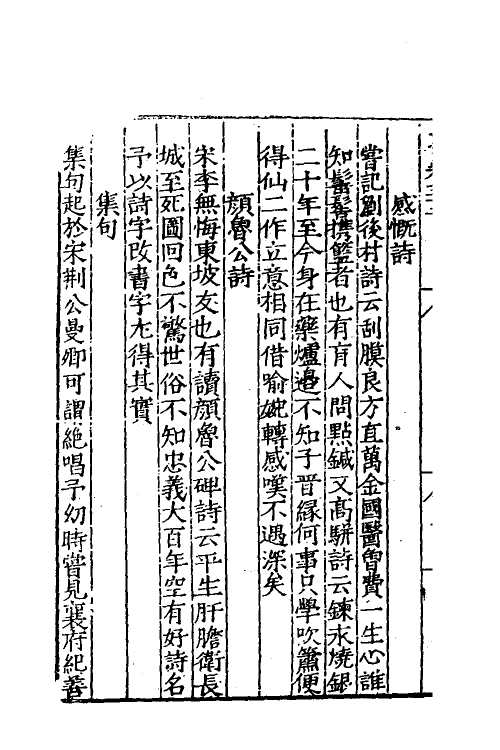 感慨詩
嘗記劉後村詩云刮膜良方直萬金國醫曾費一生心誰
知鬅鬙携籃者也有盲人問點鍼又高駢詩云鍊汞燒鉛
二十年至今身在藥爐邉不知子晉縁何事只學吹簫便
得仙二作立意相同借喻婉轉感嘆不遇深矣
顔魯公詩
宋李無悔東坡友也有讀顔魯公碑詩云平生肝膽衛長
城至死圖回色不驚世俗不知忠義大百年空有好詩名
予以詩字改書字尤得其實
集句
集句起於宋荆公曼卿可謂絶唱予幼時嘗見襄府紀善